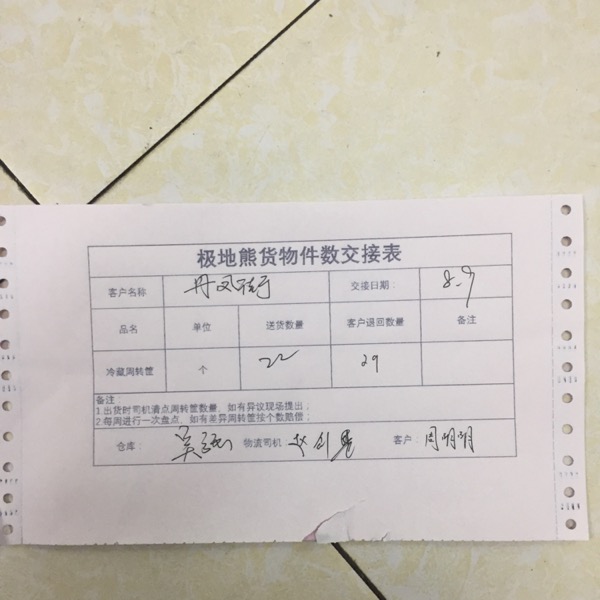 极地熊货物件数交接表
客户名称 丹凤街 交接日期： 8.9
品名 单位 送货数量 客户退回数量 备注
冷藏周转筐 个 22 29
备注
1.出货时司机清点周转筐数量，如有异议现场提出；
2.每周进行一次盘点，如有差异周转筐按个数赔偿；
仓库： 吴 物流司机： 赵 客户： 周明明